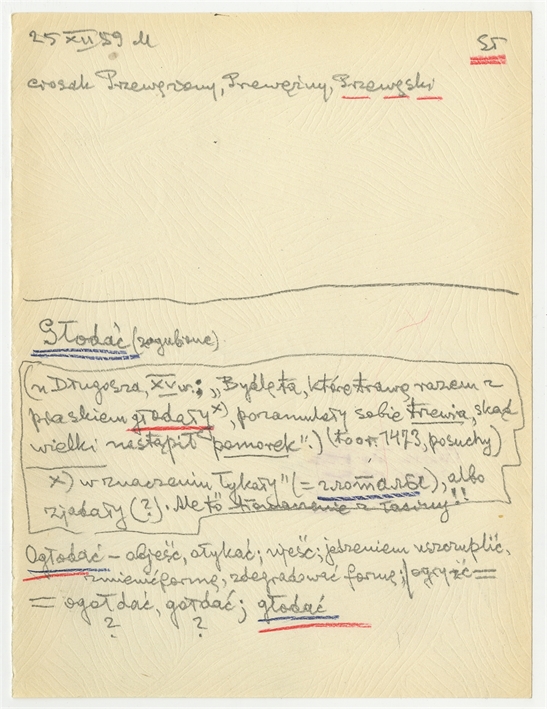 25 XII 59 M
ST
crosak Przewęzony, Przewęziny, Przewęski
Głodać (zagubione)
(u Długosza, XV w.; „Bydlęta, które trawę razem z
piaskiem głodały x), pozamulały sobie trzewia, skąd
wielki nastąpił pomorek".) (to o r. 1473, posuchy)
x) w znaczeniu łykały" (= zrómarbl), albo
zjadały (?). Ale to tłómaczenie z łaciny!!
Ogłodać – objeść, otykać; ujeść; jedzeniem uszczuplić,
zmienić formę, zdegradować formę; ogryźć =
= ogołdać, gołdać; głodać
? ?